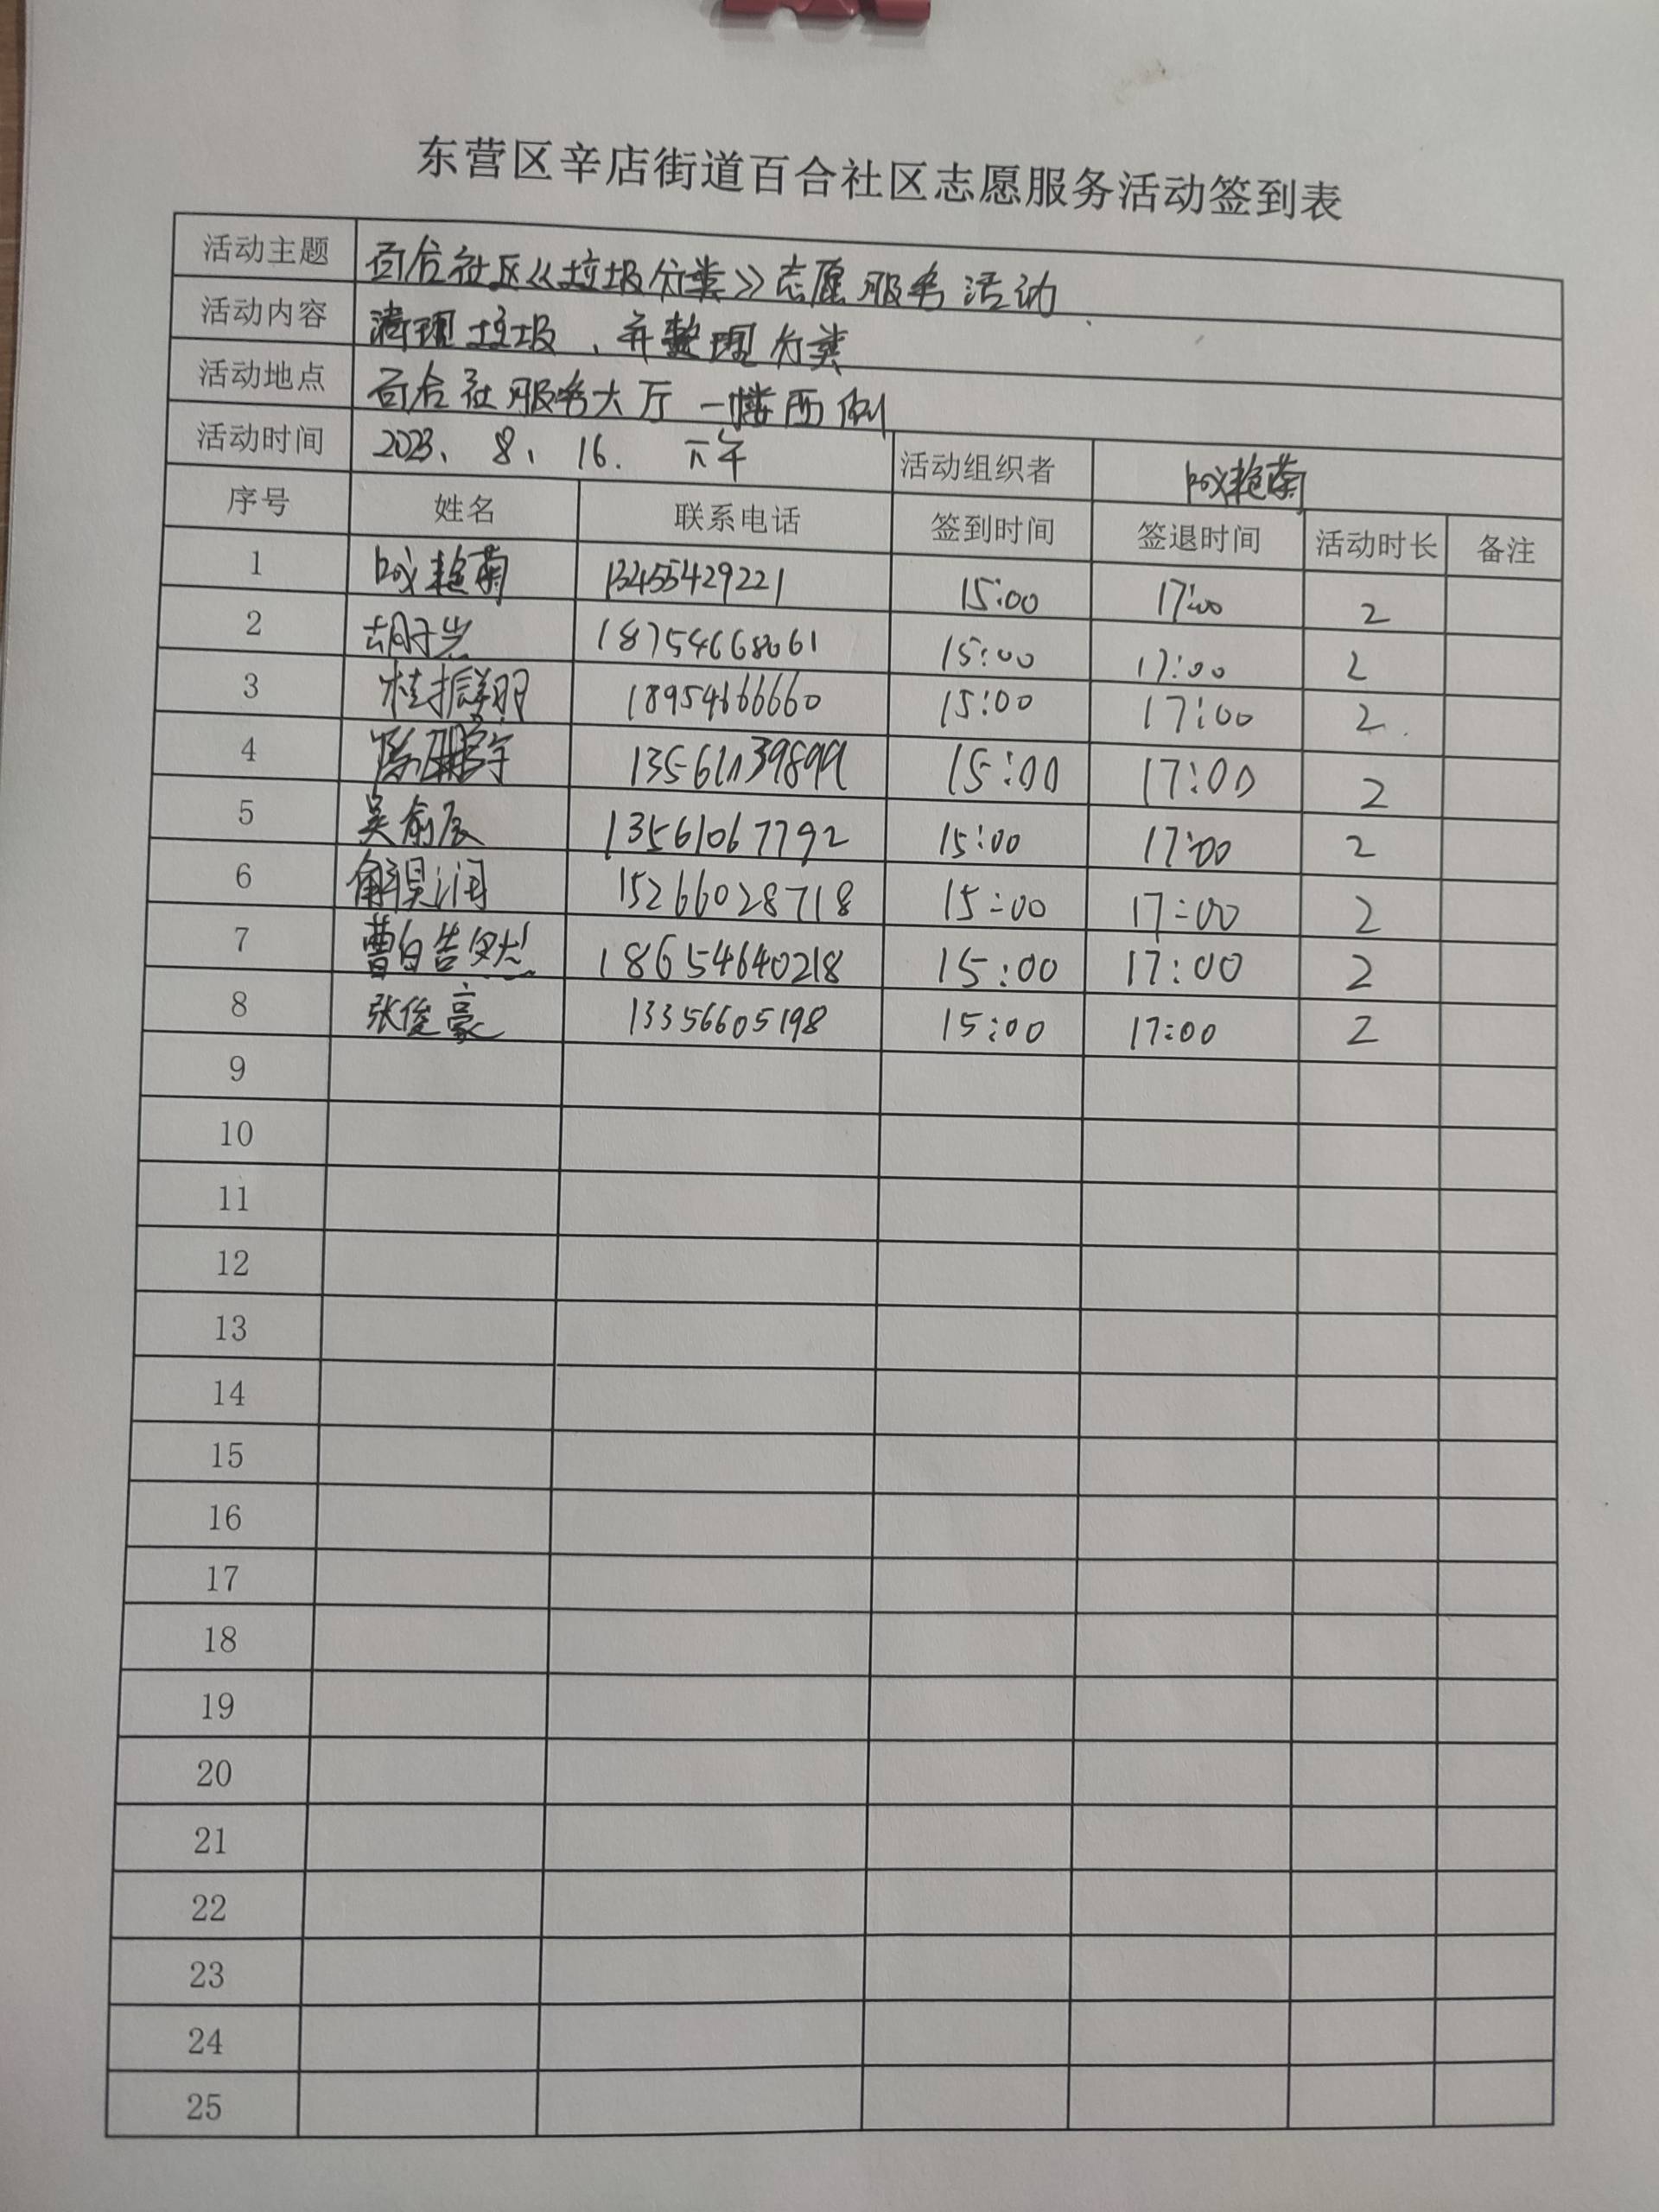 东营区辛店街道百合社区志愿服务活动签到表
活动主题 百合社区《垃圾分类》志愿服务活动
活动内容 清理垃圾、并整理分类
活动地点 百合社服务大厅一楼西侧
活动时间 2023、8、16. 下午 活动组织者 艳菊
序号 姓名 联系电话 签到时间 签退时间 活动时长 备注
1 艳菊 13455429221 15:00 17:00 2
2 胡子 18754668061 15:00 17:00 2
3 桂振翔 18954666660 15:00 17:00 2
4 陈鹏宇 15:00 17:00 2
5 吴俞辰 13561067792 15:00 17:00 2
6 解昊润 15266028718 15:00 17:00 2
7 曹皓然 18654640218 15:00 17:00 2
8 张俊豪 13356605198 15:00 17:00 2
9
10
11
12
13
14
15
16
17
18
19
20
21
22
23
24
25